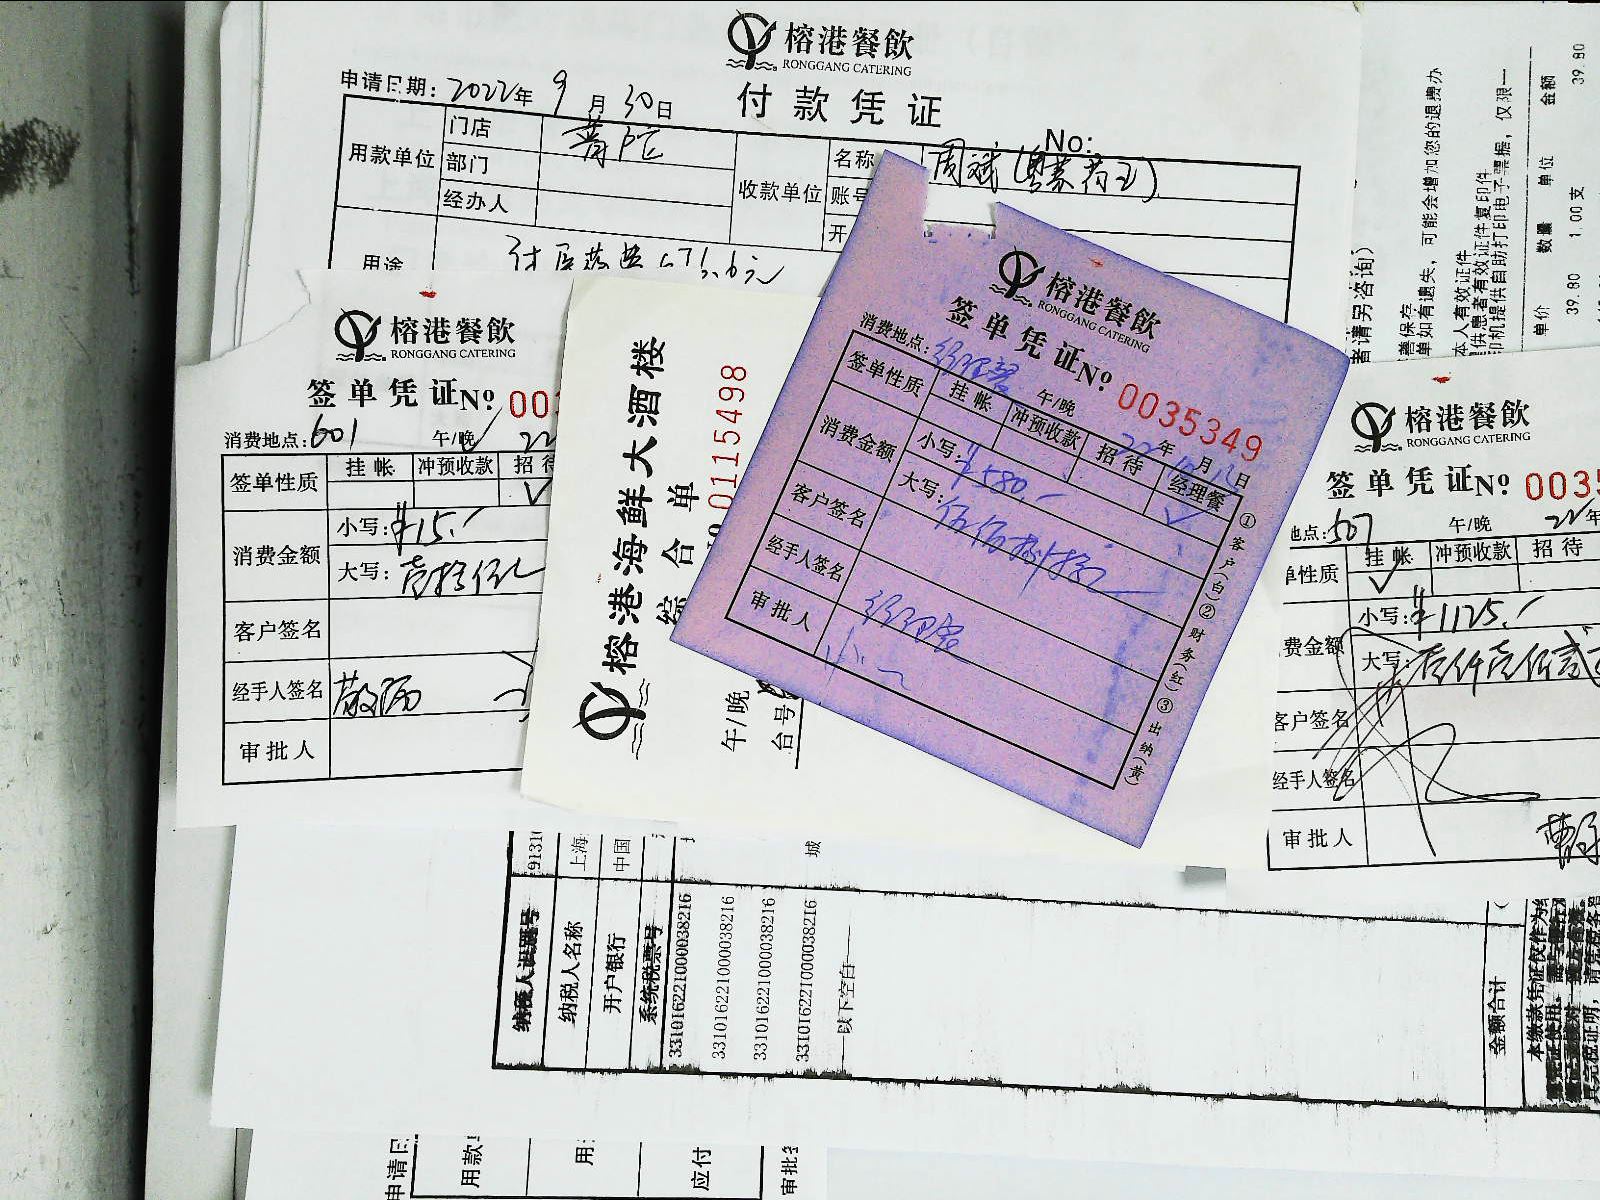 榕港餐飲
RONGGANG CATERING
付款凭证
申请日期：2022年9月30日
No:
用款单位
门店
普陀
部门
经办人
收款单位
名称
周斌
账号
开
用途
榕港餐飲
RONGGANG CATERING
签单凭证№ 00
消费地点：601 午/晚 22
签单性质 挂帐 冲预收款 招待
✓
消费金额
小写：¥15.-
大写：壹拾伍元
客户签名
经手人签名
审批人
榕港海鲜大酒楼
综合单
№ 0115498
午/晚
台号
榕港餐飲
RONGGANG CATERING
签单凭证№ 0035349
消费地点：经理餐 午/晚 22年10月12日
签单性质 挂帐 冲预收款 招待 经理餐
✓
消费金额
小写：¥580.-
大写：伍佰捌拾元
客户签名
经手人签名
经理餐
审批人
①客户(白)②财务(红)③出纳(黄)
榕港餐飲
RONGGANG CATERING
签单凭证№ 0035
地点：507 午/晚 22年
单性质 挂帐 冲预收款 招待
✓
费金额
小写：¥1125.-
大写：壹仟壹佰贰
客户签名
经手人签名
审批人
者请另咨询）
可能会增加您的退费办
善保存
单如有遗失，
本人有效证件
供患者有效证件复印件
印机提供自助打印电子票据，仅限一
单价 数量 单位 金额
39.80 1.00 支 39.80
纳税人识别号 91310
纳税人名称 上海
开户银行 中国
系统税票号
城
331016221000038216
331016221000038216
331016221000038216
331016221000038216
以下空白
金额合计
本缴款凭证仅作为
申请日
用款
用
应付
审批